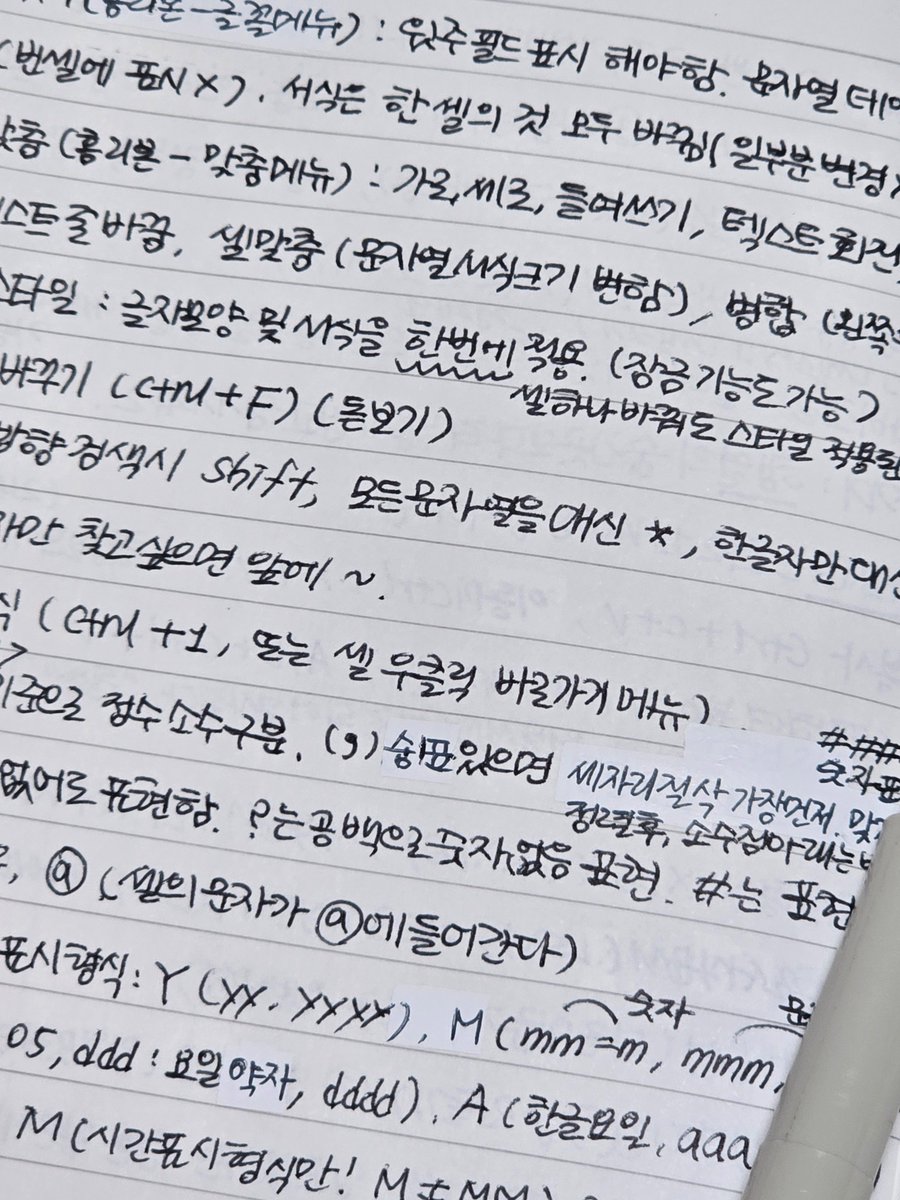 (홈리본-글꼴메뉴) : 윗주필드표시 해야함. 문자열 데이
(빈셀에 표시X). 서식은 한 셀의 것 모두 바뀜(일부분변경X
맞춤(홈리본-맞춤메뉴) : 가로,세로, 들여쓰기, 텍스트 회전
스트줄바꿈, 셀맞춤 (문자열서식크기 변함), 병합 (왼쪽
스타일 : 글자모양 및 서식을 한번에 적용. (잠금기능도가능)
셀하나바꿔도 스타일 적용된
바꾸기 (ctrl+F) (돋보기)
방향 검색시 shift, 모든문자열을대신 *, 한글자만 대신
만 찾고싶으면 앞에 ~.
식 (ctrl +1, 또는 셀 우클릭 바로가기 메뉴)
기준으로 정수 소수구분. (,) 쉼표있으면 세자리절삭 가장먼저.
정렬후, 소수점아래는
###
숫자표
없어도 표현함. ?는공백으로숫자없음 표현. #는 표현
@ (셀의문자가 @에들어간다)
표시형식: Y (YY, YYYY), M (mm=m, mmm,
숫자
05, ddd : 요일약자, dddd). A (한글요일, aaa
M (시간표시형식만! M≠MM)